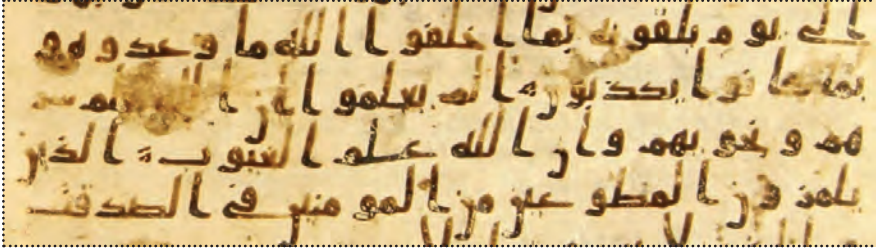 الى يوم يلقونه بما اخلفوا الله ما وعدوه و
بما كانوا يكذبون الم يعلموا ان الله يعلم سر
هم و نجويهم و ان الله علم الغيوب الذين
يلمزون المطوعين من المومنين في الصدقت